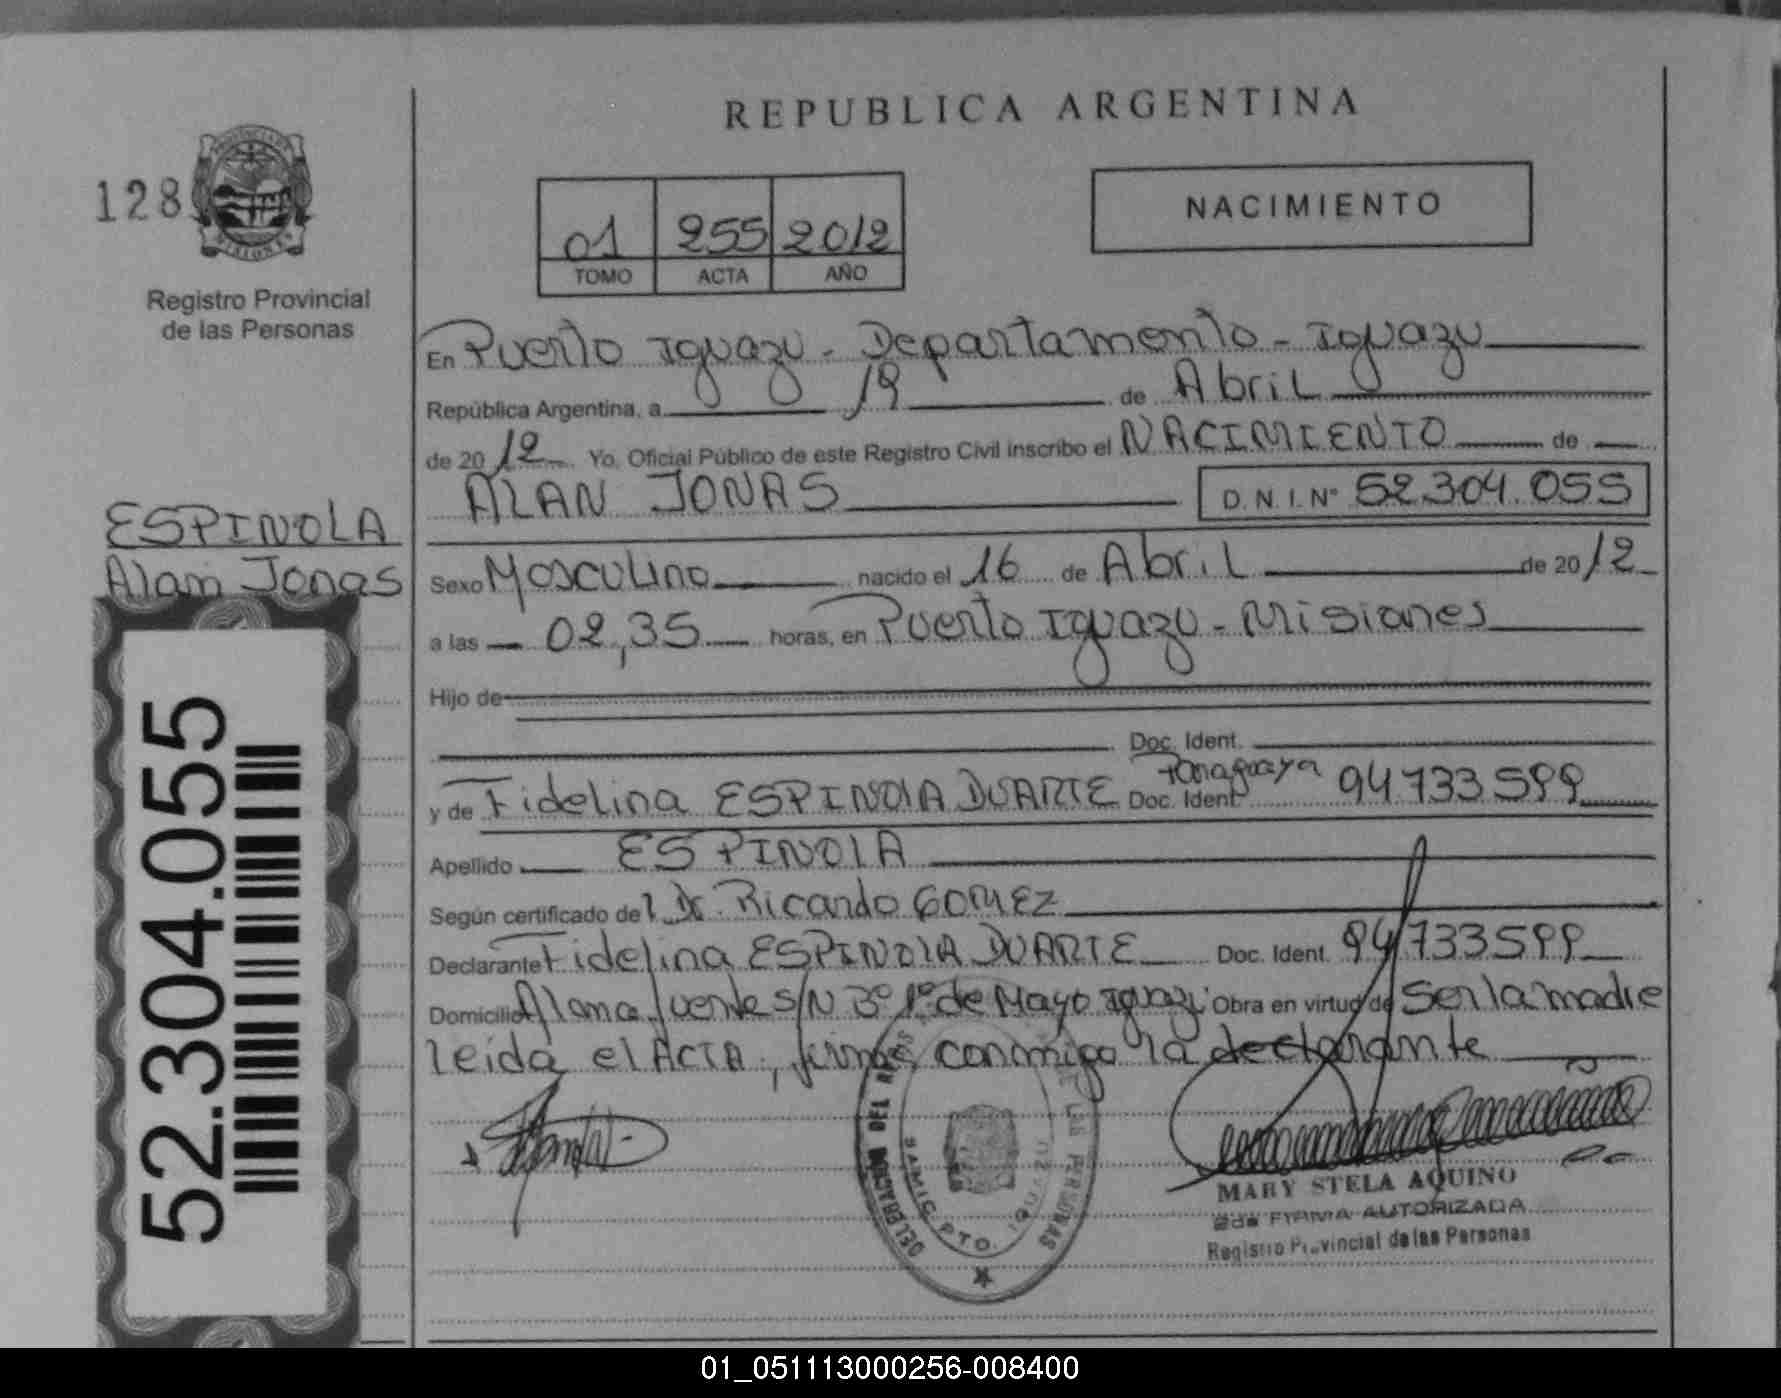 REPUBLICA ARGENTINA
128
PROVINCIA DE MISIONES
Registro Provincial
de las Personas
01 255 2012
TOMO ACTA AÑO
NACIMIENTO
En Puerto Iguazu - Departamento - Iguazu
República Argentina, a 19 de Abril
de 2012 Yo, Oficial Público de este Registro Civil inscribo el NACIMIENTO de
ALAN JONAS D.N.I.Nº 52.304.055
ESPINOLA
Alan Jonas
Sexo Masculino nacido el 16 de Abril de 2012
a las 02,35 horas, en Puerto Iguazu - Misiones
Hijo de
Doc. Ident.
y de Fidelina ESPINOLA DUARTE Doc. Ident. Paraguaya 94 733 599
Apellido ESPINOLA
Según certificado del Dr. Ricardo GOMEZ
Declarante Fidelina ESPINOLA DUARTE Doc. Ident. 94 733 599
Domicilio S/N Bº 1º de Mayo Iguazu Obra en virtud de Ser la madre
leida el ACTA, firma conmigo la declarante
52.304.055
DELEGACION DEL REGISTRO DE LAS PERSONAS
SAMIC PTO. IGUAZU
MARY STELA AQUINO
2da FIRMA AUTORIZADA
Registro Provincial de las Personas
01_051113000256-008400